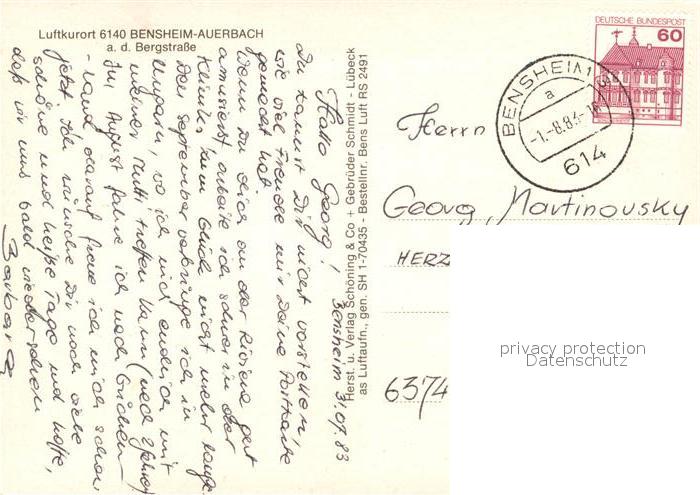 Luftkurort 6140 BENSHEIM-AUERBACH
a. d. Bergstraße
Herst. u. Verlag Schöning & Co + Gebrüder Schmidt - Lübeck
as Luftaufn., gen. SH 1-70435 - Bestellnr. Bens Luft RS 2491
Bensheim 31.07.83
Hallo Georg!
Du kannst Dir nicht vorstellen,
wie viel Freude mir Deine Postkarte
gemacht hat.
Wenn Du Dich an der Riviera gut
amüsierst arbeite ich schwer in der
Klinik, zum Glück nicht mehr lange.
Den September verbringe ich in
Ungarn, wo ich mich endlich mit
meiner Mutti treffen kann (nach 2 Jahren)
Im August fahre ich nach Griechen-
-land darauf freue ich mich schon
jetzt. Ich wünsche Dir noch viele
schöne und heiße Tage und hoffe,
daß wir uns bald wiedersehen
Barbara
DEUTSCHE BUNDESPOST
60
BENSHEIM 1
a
-1.-8.83
614
Herrn
Georg Martinovsky
HERZ
6374
privacy protection
Datenschutz